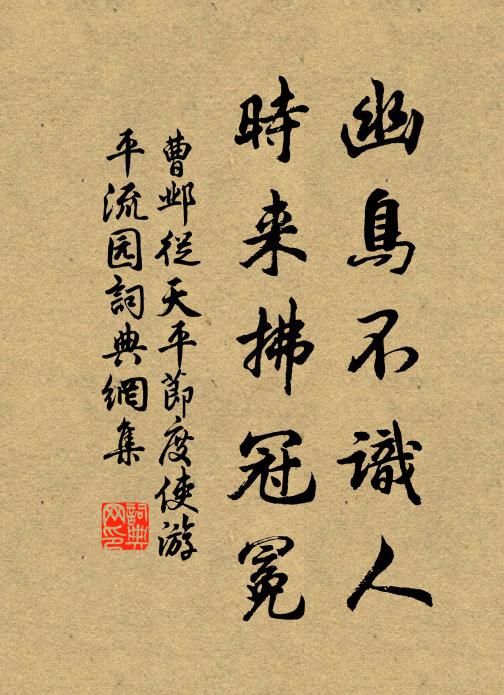 幽鳥不識人
時来拂冠冕
曹邺從天平節度使游
平流园詞典網集
詞典
网印